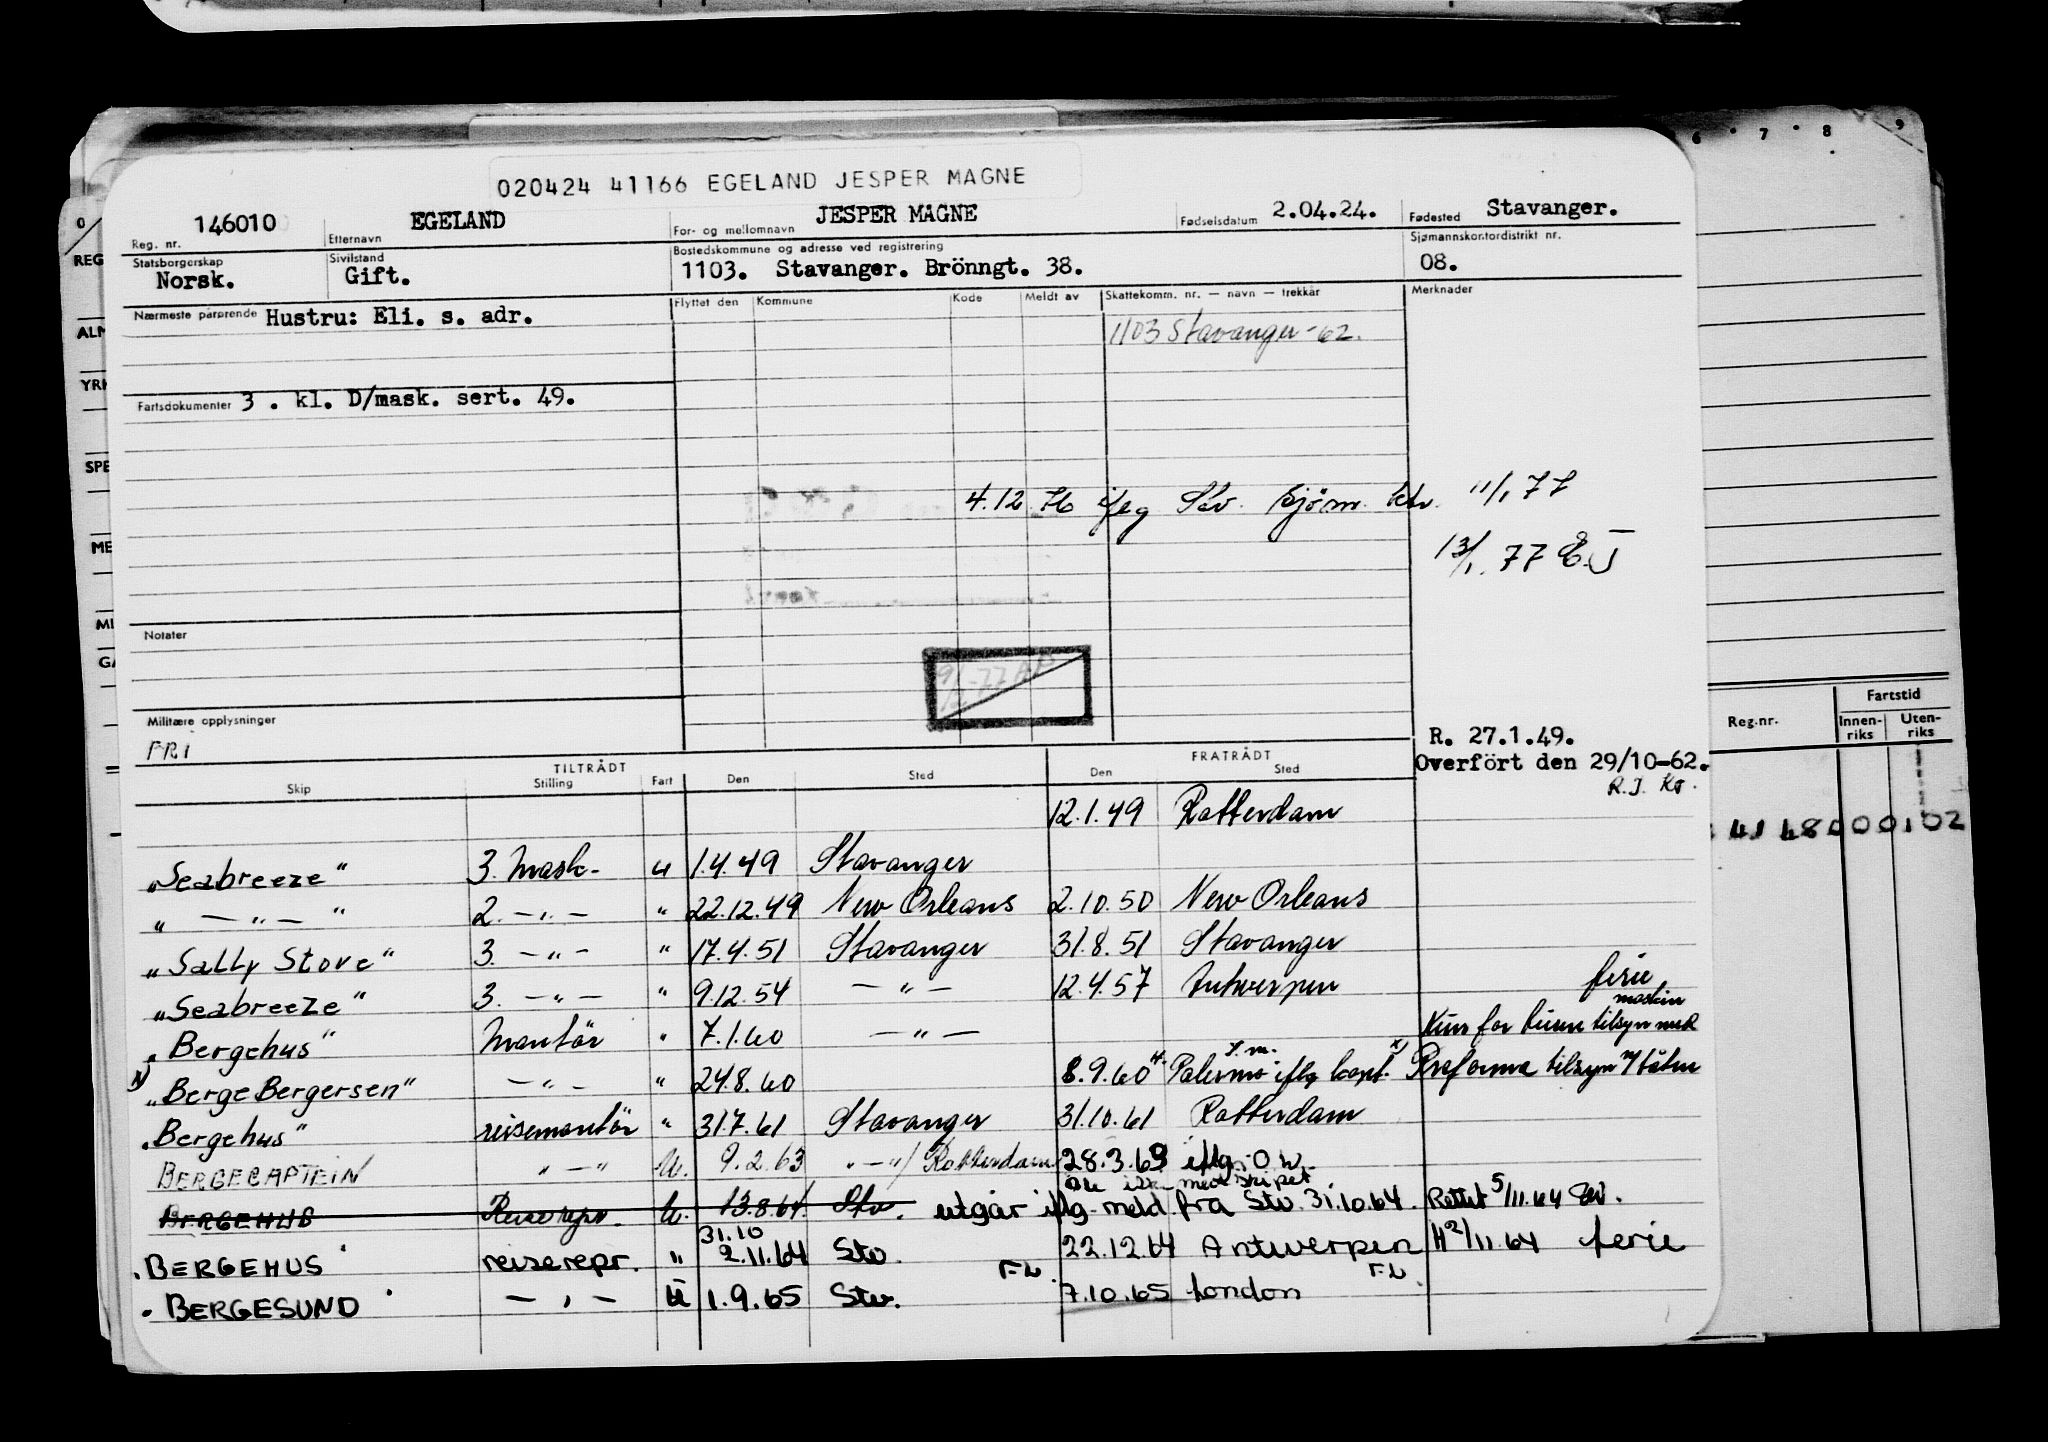 6 • 7 • 8 9
020424 41166 EGELAND JESPER MAGNE
146010 EGELAND JESPER MAGNE 2.04.24. Stavanger.
Reg. nr. Etternavn For- og mellomnavn Fødselsdatum Fødested
Statsborgerskap Sivilstand Bostedskommune og adresse ved registrering Sjømannskontordistrikt nr.
Norsk. Gift. 1103. Stavanger. Brönngt. 38. 08.
Nærmeste pårørende Hustru: Eli. s. adr. Flyttet den Kommune Kode Meldt av Skattekomm. nr. — navn — trekkår Merknader
1103 Stavanger -62.
Fartsdokumenter 3 . kl. D/mask. sert. 49.
4.12 76 iflg Stv. Sjöm. ktr. 11/1 77
13/1. 77 E.J
Notater
9/ -77
Militære opplysninger
FRI
R. 27.1.49.
Overfört den 29/10-62.
R.J. Ko.
Reg.nr. Fartstid
Innen-riks Uten-riks
41 48000102
TILTRÅDT FRATRÅDT
Skip Stilling Fart Den Sted Den Sted
12.1.49 Rotterdam
"Seabreeze" 3. mask- u 1.4.49 Stavanger
" — " — " 2. — " — " 22.12.49 New Orleans 2.10.50 New Orleans
"Sally Stove" 3. — " — " 17.4.51 Stavanger 31.8.51 Stavanger
"Seabreeze" 3. — " — " 9.12.54 — " — 12.4.57 Antwerpen ferie
"Bergehus" Montör " 7.1.60 — " — Kun for turen tilsyn med maskin
x) "Berge Bergersen" — " — " 24.8.60 8.9.60 Palermo iflg kapt. x) Proforma tilsyn m/ båten
"Bergehus" reisemontör " 31.7.61 Stavanger 31.10.61 Rotterdam
BERGECAPTEIN " — " U. 9.2.63 " — " / Rotterdam 28.3.63 iflg. O.W.
med skipet
BERGEHUS Reiserepr. U. 13.8.64. Stv. utgår iflg. meld. fra Stv. 31.10.64. Rettet 5/11.64
BERGEHUS reiserepr. " 31.10 2.11.64 Stv. 22.12.64 Antwerpen H 2/11.64 ferie
BERGESUND — " — U 1.9.65 Stv. FL. 7.10.65 London FL.